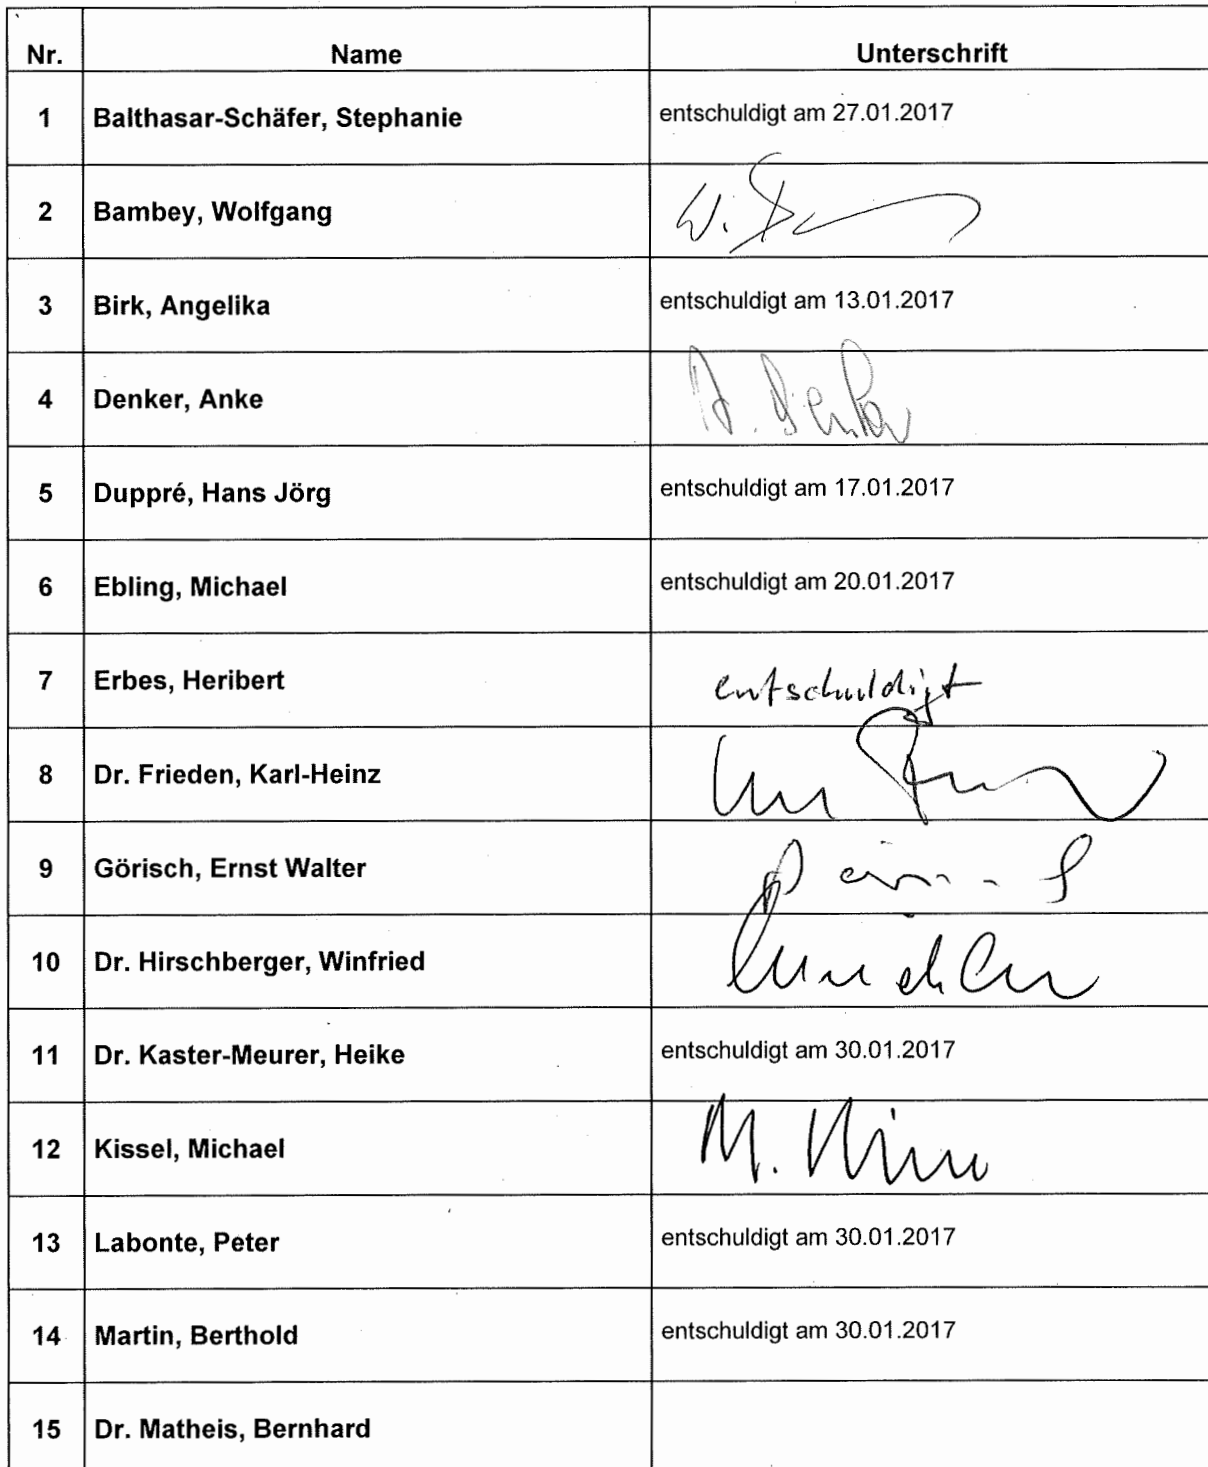 Nr. Name Unterschrift
1 Balthasar-Schäfer, Stephanie entschuldigt am 27.01.2017
2 Bambey, Wolfgang W.
3 Birk, Angelika entschuldigt am 13.01.2017
4 Denker, Anke A. Denker
5 Duppré, Hans Jörg entschuldigt am 17.01.2017
6 Ebling, Michael entschuldigt am 20.01.2017
7 Erbes, Heribert entschuldigt
8 Dr. Frieden, Karl-Heinz
9 Görisch, Ernst Walter
10 Dr. Hirschberger, Winfried
11 Dr. Kaster-Meurer, Heike entschuldigt am 30.01.2017
12 Kissel, Michael M.
13 Labonte, Peter entschuldigt am 30.01.2017
14 Martin, Berthold entschuldigt am 30.01.2017
15 Dr. Matheis, Bernhard